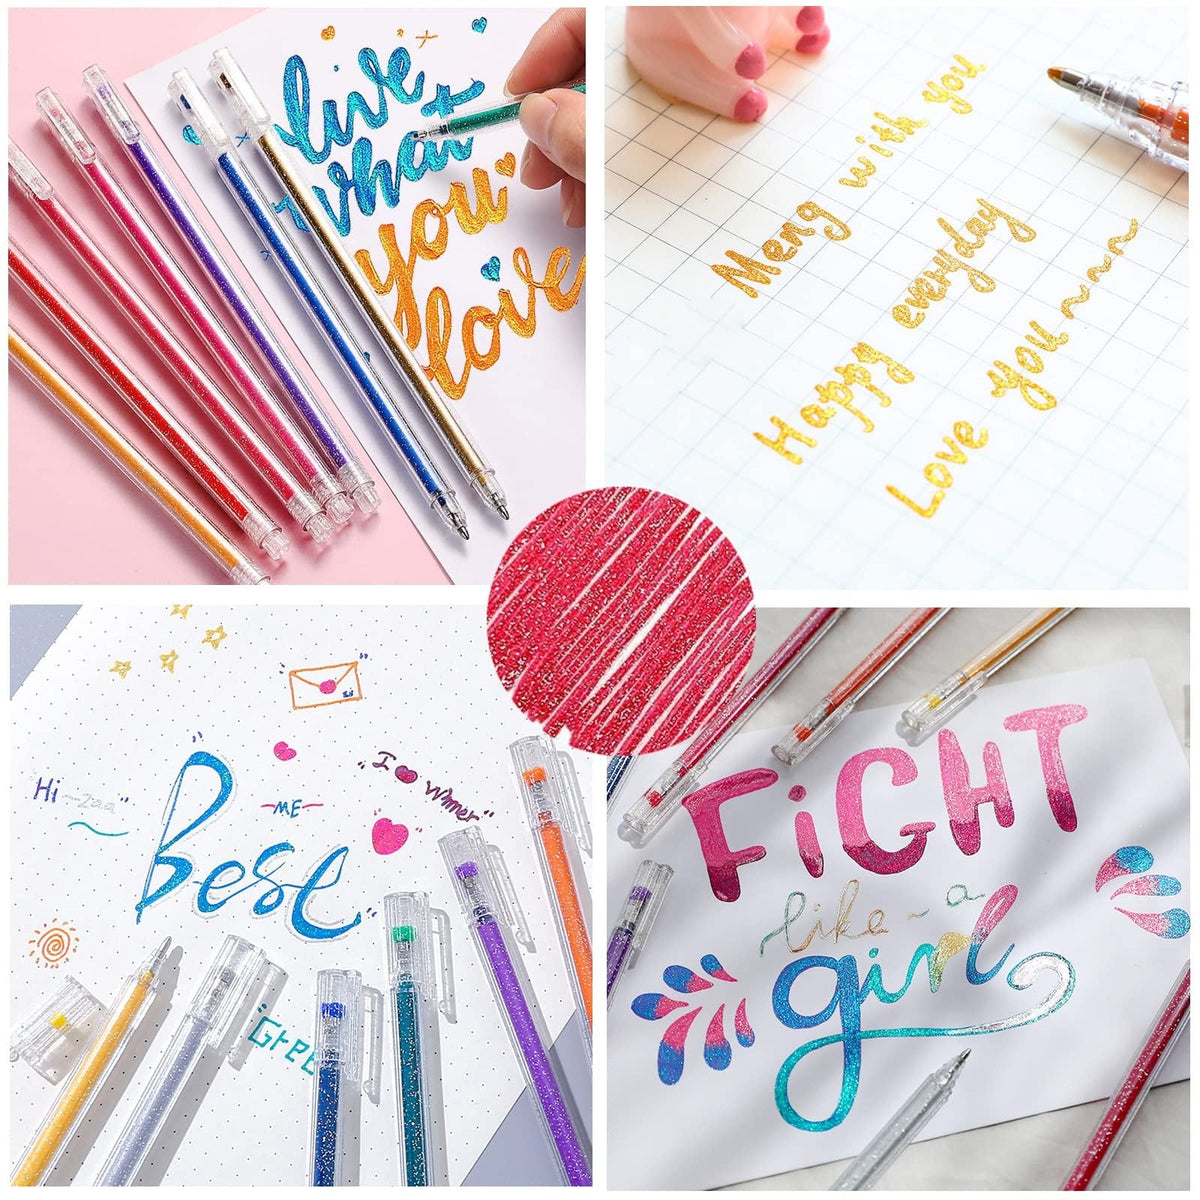 live
what
you
love
Meng with you
Happy everyday
Love you~~~
Hi~zaa"
"I ❤ Wmer"
-ME-
Best
"Gree
FiGHT
like~a
girl